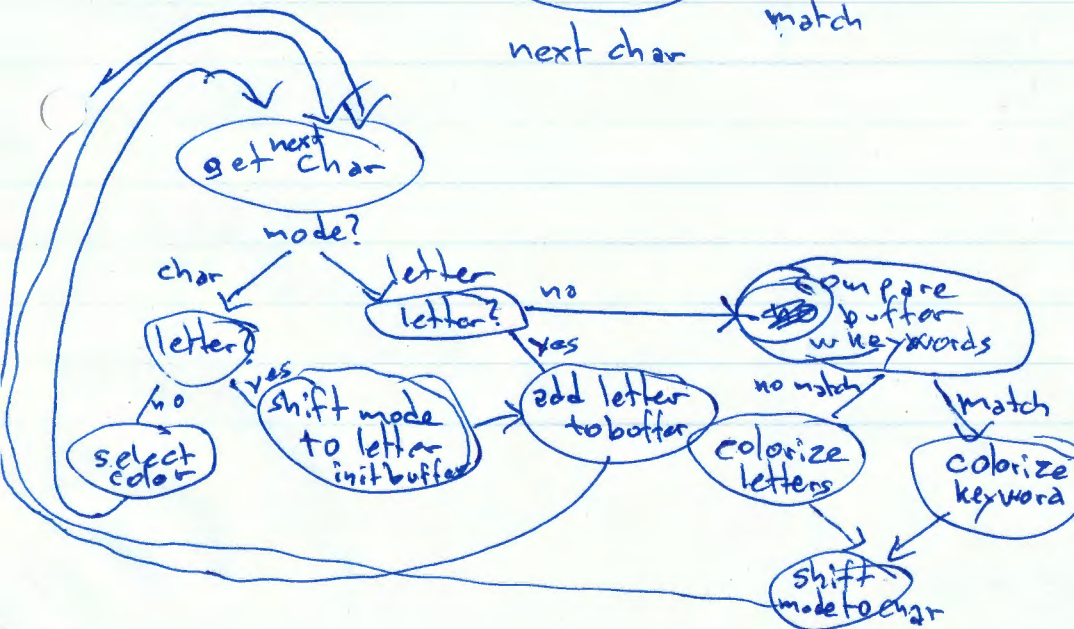 match
next char
get next char
mode?
char
letter
letter?
letter?
no
compare
buffer
w keywords
yes
no
yes
select
color
shift mode
to letter
init buffer
add letter
to buffer
no match
match
colorize
letters
colorize
keyword
shift
mode to char